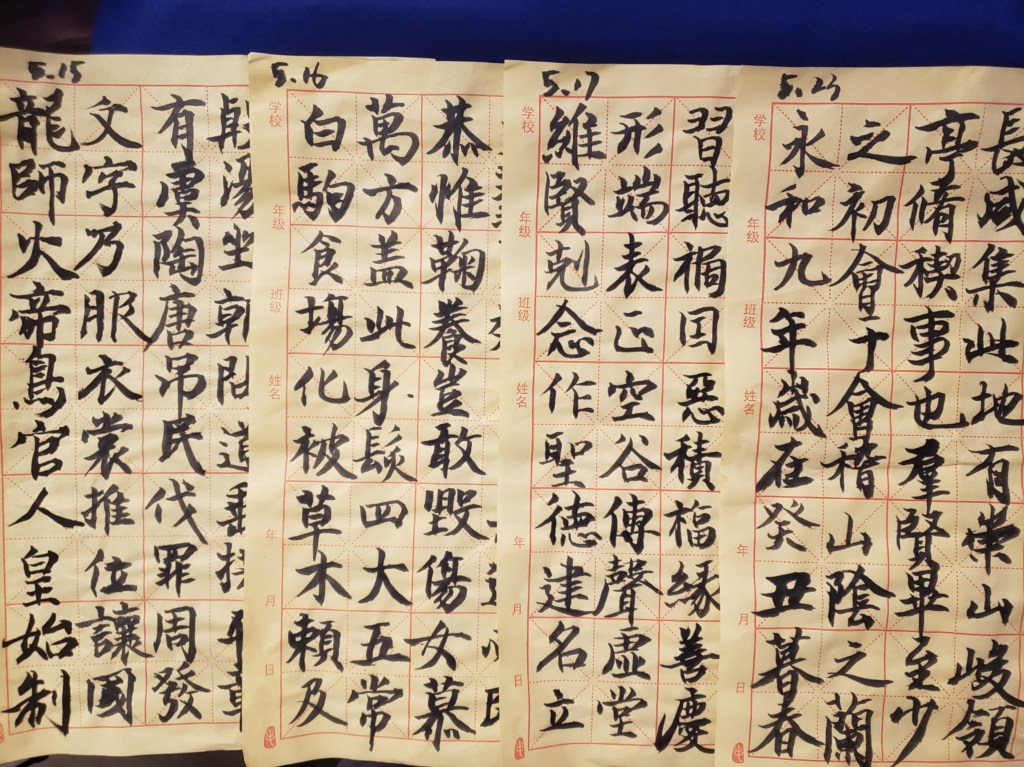 5.15
龍師火帝鳥官人皇始制
文字乃服衣裳推位讓國
有虞陶唐吊民伐罪周發
殷湯坐朝問道垂拱平章
5.16
学校 年级 班级 姓名 年 月 日
白駒食場化被草木賴及
萬方盖此身髮四大五常
恭惟鞠養豈敢毀傷女慕
5.17
学校 年级 班级 姓名 年 月 日
維賢剋念作聖德建名立
形端表正空谷傳聲虛堂
習聽禍因惡積福緣善慶
5.23
学校 年级 班级 姓名 年 月 日
永和九年歲在癸丑暮春
之初會于會稽山陰之蘭
亭脩稧事也羣賢畢至少
長咸集此地有崇山峻領